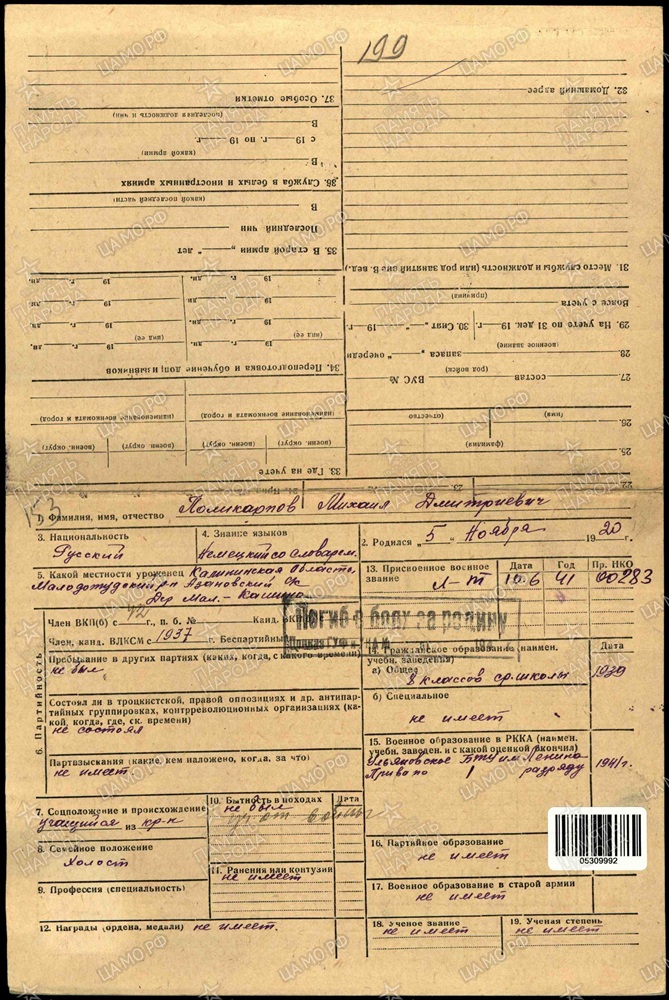 199
32. Домашний адрес
31. Место службы и должность (или род занятий вне В. вед.)
(причина)
Вовсе с учета
29. На учете по 31 дек. 19 г. 30. Снят „ “ 19 г.
(военное звание)
28. запаса „ “ очереди
(род войск)
27. состав ВУС №
(имя) (отчество)
26.
(фамилия)
25.
22. 23.
37. Особые отметки
(последняя должность и чин)
В
с 19 г. по 19 г.
(какой армии)
В
36. Служба в белых и иностранных армиях
(какой последней части)
В
Последний чин
35. В старой армии „ “ лет
19 г. дн. 19 г. дн.
19 г. дн. 19 г. дн.
19 г. дн. 19 г. дн.
(вид ее) (вид ее)
19 г. дн. 19 г. дн.
34. Переподготовка и обучение допризывников
(наименование военкомата и город) (наименование военкомата и город)
(военн. округ) (военн. округ) (военн. округ) (военн. округ)
33. Где на учете
153
1) Фамилия, имя, отчество Поликарпов Михаил Дмитриевич
3. Национальность Русский
4. Знание языков Немецкий со словарем.
2. Родился „5“ Ноября 1920 г.
5. Какой местности уроженец Калининская область,
Молодотудский р-н Азановский с/с
Дер Мал. - Кашино
13. Присвоенное военное звание Дата Год Пр. НКО
Л-т 10.6 41 00283
Погиб в боях за родину
6. Партийность
Член ВКП(б) с г., п. б. № Канд. ВКП
Член, канд. ВЛКСМ с 1937 г. Беспартийный
Пребывание в других партиях (каких, когда, с какого времени)
не был
Состоял ли в троцкистской, правой оппозициях и др. антипар-
тийных группировках, контрреволюционных организациях (ка-
кой, когда, где, ск. времени)
не состоял
Партвзыскания (какие, кем наложено, когда, за что)
не имеет
14. Гражданское образование (наимен. учебн. заведения) Дата
а) Общее
8 классов ср. школы 1939
б) Специальное
не имеет
15. Военное образование в РККА (наимен.
учебн. заведен. и с какой оценкой окончил)
Ульяновское БТУ им Ленина 1941 г.
Приво по I разряду
7. Соцположение и происхождение
учащийся из кр-н
8. Семейное положение
Холост
9. Профессия (специальность)
10. Бытность в походах Дата
не был
уч. от. войны
11. Ранения или контузии
не имеет
12. Награды (ордена, медали) не имеет.
16. Партийное образование
не имеет
17. Военное образование в старой армии
не имеет
18. Ученое звание
не имеет
19. Ученая степень
не имеет
05309992
ПАМЯТЬ НАРОДА
ЦАМО.РФ